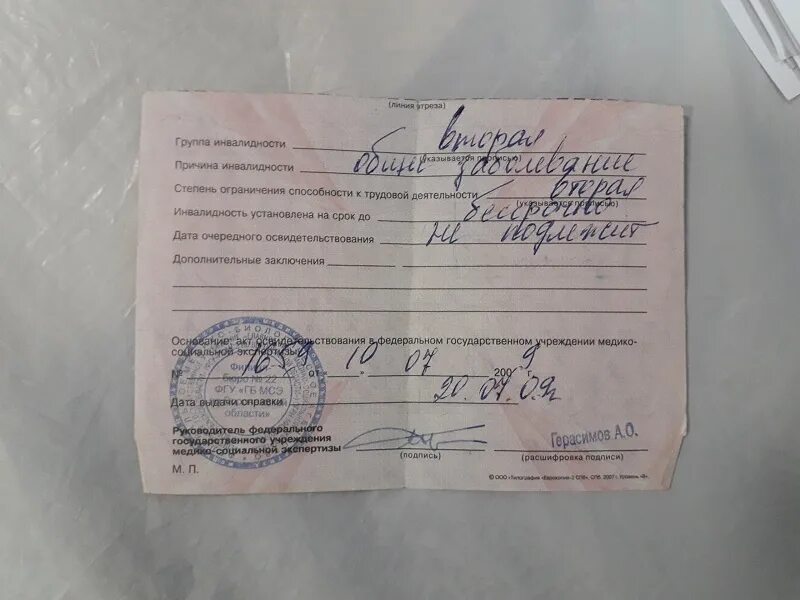 (линия отреза)
Группа инвалидности вторая
(указывается прописью)
Причина инвалидности общее заболевание
Степень ограничения способности к трудовой деятельности вторая
(указывается прописью)
Инвалидность установлена на срок до бессрочно
Дата очередного освидетельствования не подлежит
Дополнительные заключения
Основание: акт освидетельствования в федеральном государственном учреждении медико-
социальной экспертизы
№ 1659 от 10 07 2009 г.
Дата выдачи справки 20.07.09г
Руководитель федерального
государственного учреждения
медико-социальной экспертизы
(подпись)
Герасимов А.О.
(расшифровка подписи)
М. П.
бюро № 22
ФГУ «ГБ МСЭ
области»
© ООО «Типография «Еврокопия-2 СПб», СПб, 2007 г. Уровень «В».